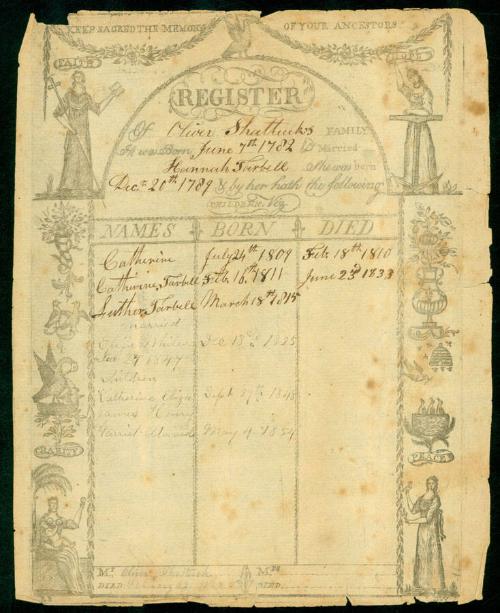 KEEP SACRED THE MEMORY OF YOUR ANCESTORS
FAITH HOPE
REGISTER
Of Oliver Shattuck's FAMILY
He was Born June 7th 1782 & Married
Hannah Tarbell She was born
Decm 20th 1789 & by her hath the following
CHILDREN. Viz.
NAMES BORN DIED
Catherine July 24th 1809 Feb. 18th 1810
Catherine Tarbell Feb. 16th 1811 June 23d 1833
Luther Tarbell March 18th 1815
married
Dec 18 1825
Jan 27 1847
Children
Catherine Eliza Sept 27th 1848
James Henry
Harriet May 4 1854
CHARITY PEACE
Mr. Oliver Shattuck Mrs.
DIED DIED